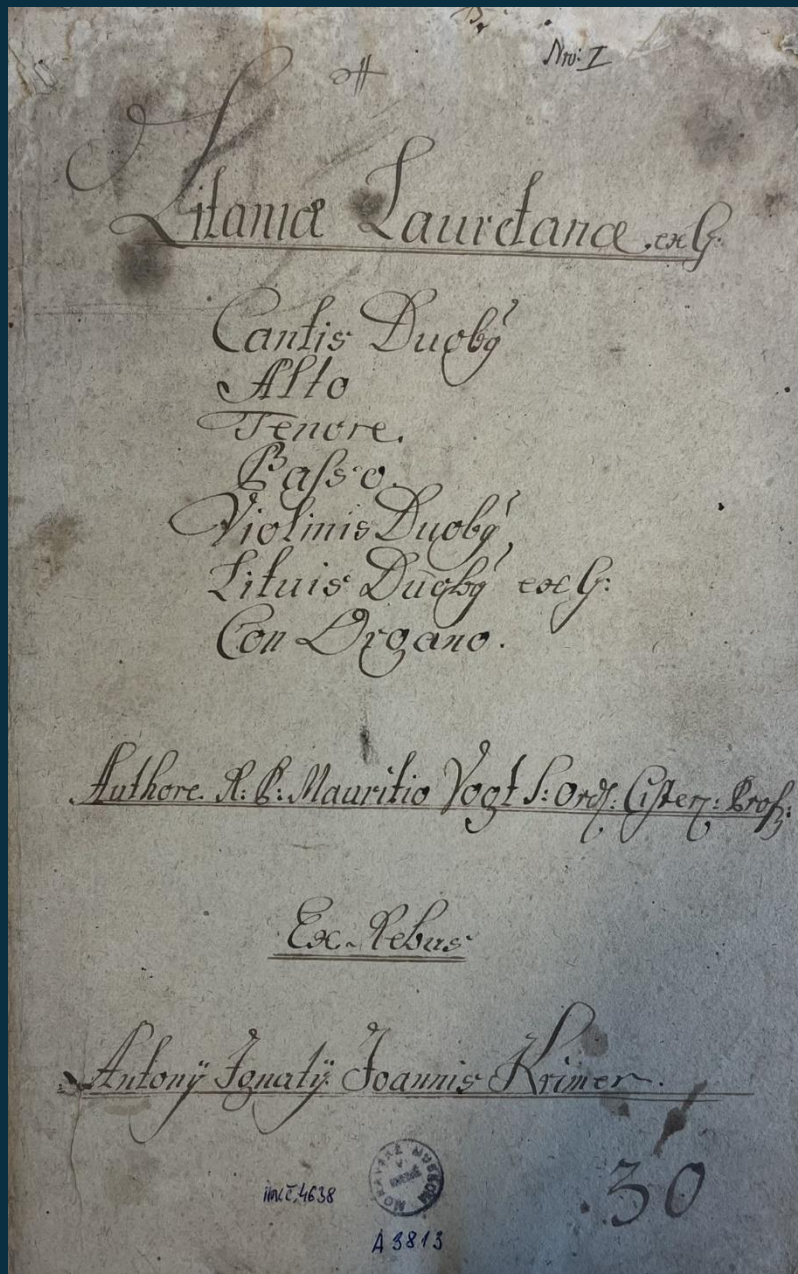 Nro: I
Litaniæ Lauretanæ ex G:
Cantis Duobq
Alto
Tenore.
Basso.
Violinis Duobq
Lituis Duobq ex G:
Con Organo.
Authore R: P: Mauritio Vogt S: Ord: Cisterz: Prof:
Ex Rebus
Antonÿ Ignatÿ Joannis Krimer.
30
inv. č. 4638
A 3813